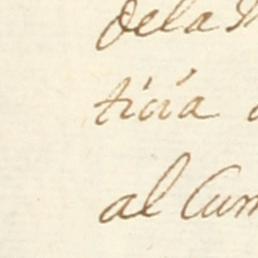 dela
ticia
al Cum